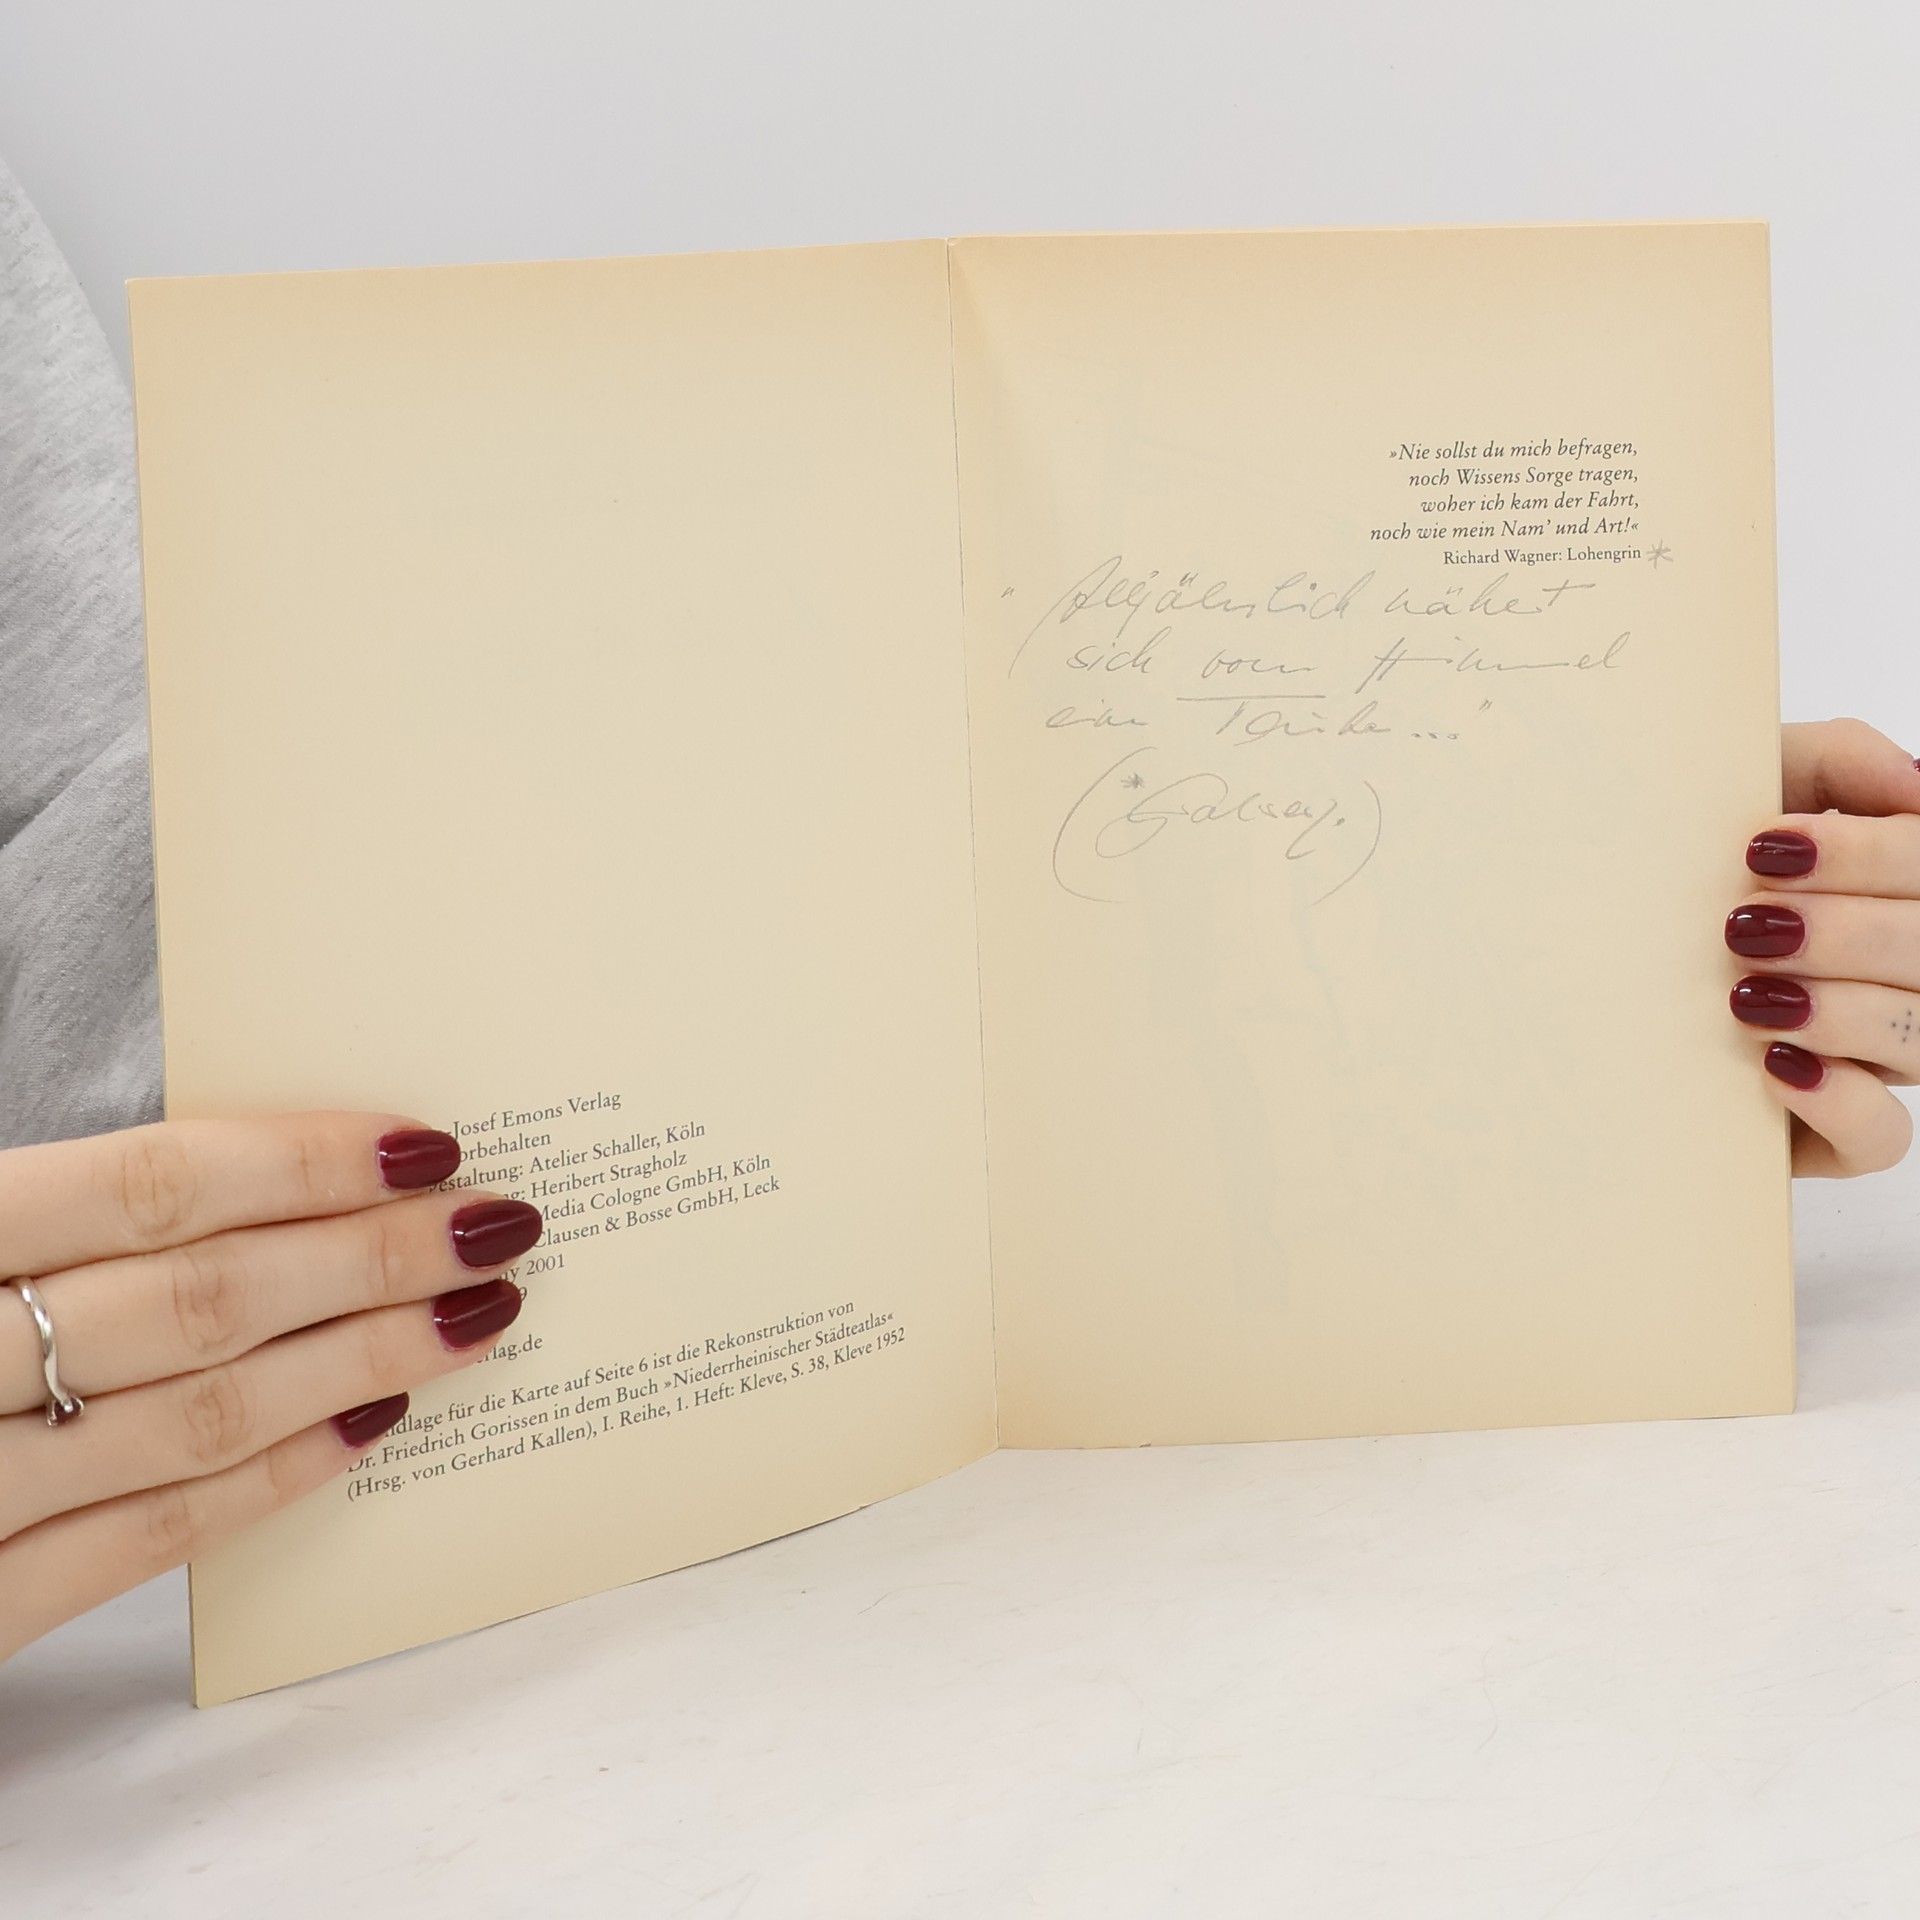 -Josef Emons Verlag
orbehalten
estaltung: Atelier Schaller, Köln
ng: Heribert Stragholz
Media Cologne GmbH, Köln
Clausen & Bosse GmbH, Leck
ny 2001
9
erlag.de
ndlage für die Karte auf Seite 6 ist die Rekonstruktion von
Dr. Friedrich Gorissen in dem Buch »Niederrheinischer Städteatlas«
(Hrsg. von Gerhard Kallen), I. Reihe, 1. Heft: Kleve, S. 38, Kleve 1952
»Nie sollst du mich befragen,
noch Wissens Sorge tragen,
woher ich kam der Fahrt,
noch wie mein Nam' und Art!«
Richard Wagner: Lohengrin *
" Alljährlich nähert
sich vom Himmel
eine Taube ..."